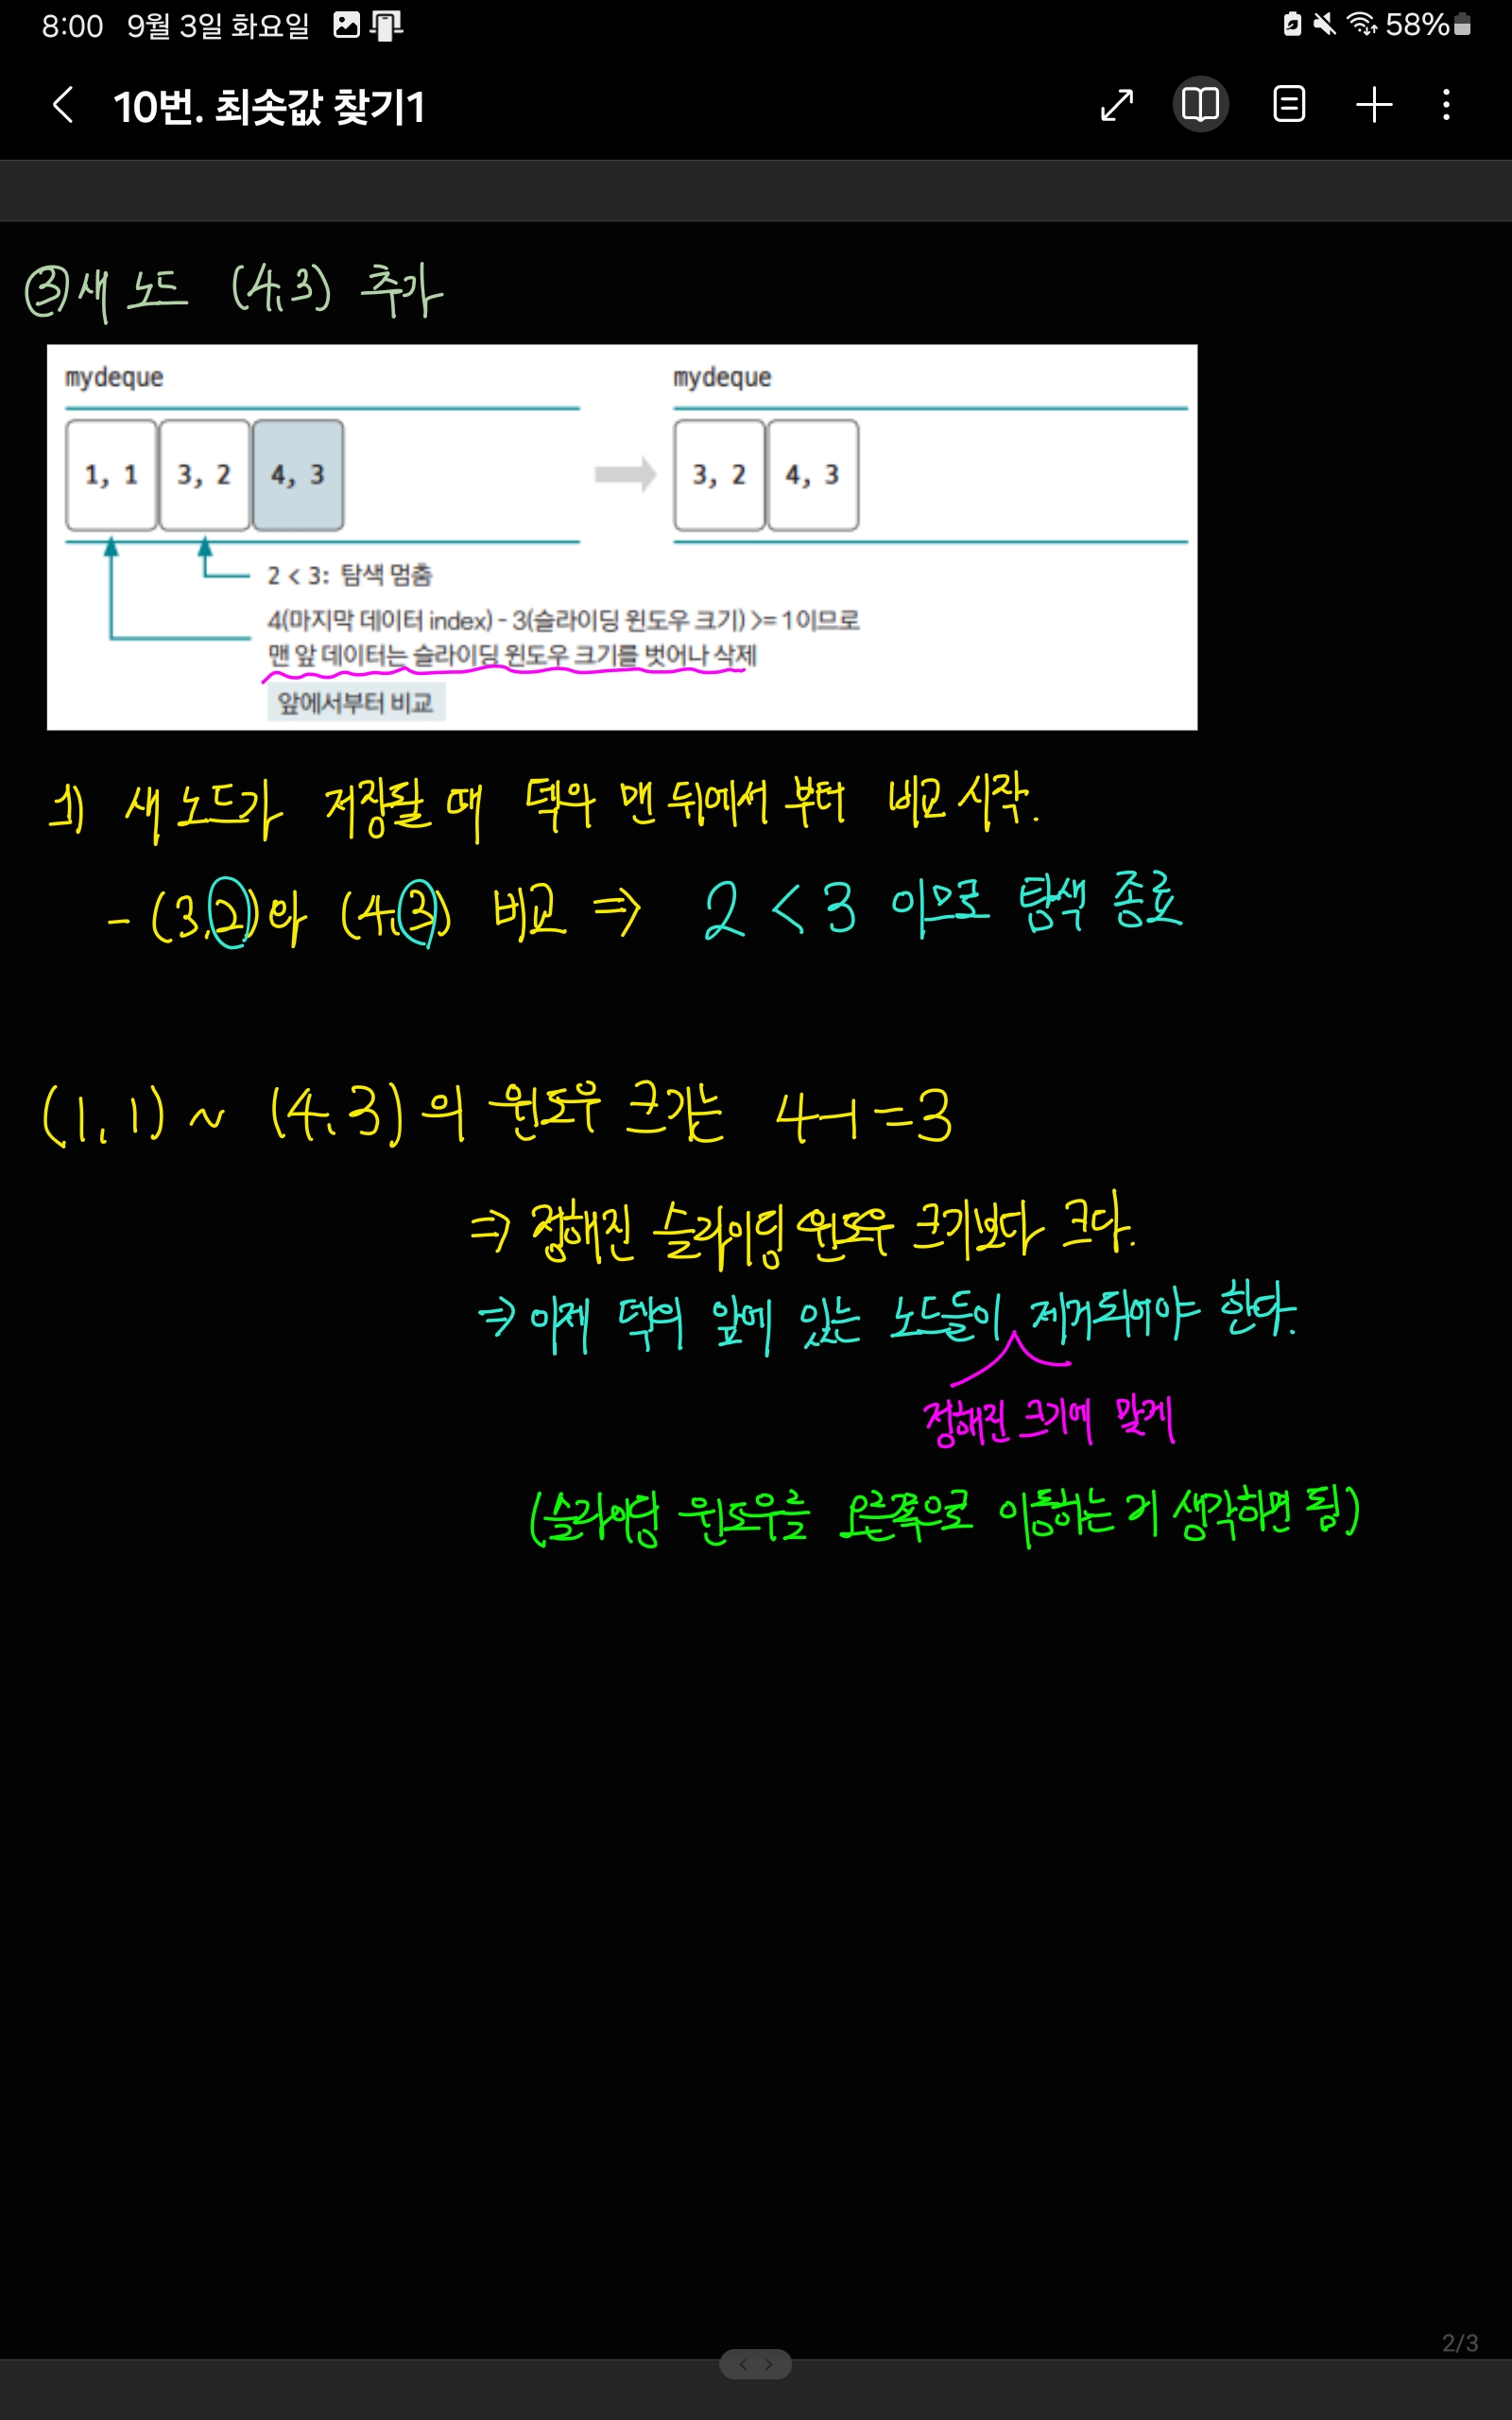 8:00 9월 3일 화요일 58%
10번. 최솟값 찾기1
③ 새 노드 (4,3) 추가
mydeque mydeque
1, 1 3, 2 4, 3 3, 2 4, 3
2 < 3: 탐색 멈춤
4(마지막 데이터 index) - 3(슬라이딩 윈도우 크기) >= 1이므로
맨 앞 데이터는 슬라이딩 윈도우 크기를 벗어나 삭제
앞에서부터 비교
1) 새 노드가 저장될 때 덱의 맨 뒤에서 부터 비교 시작.
- (3,2)와 (4,3) 비교 ⇒ 2 < 3 이므로 탐색 종료
(1,1) ~ (4,3)의 윈도우 크기는 4-1=3
⇒ 정해진 슬라이딩 윈도우 크기보다 크다.
⇒ 이제 덱의 앞에 있는 노드들이 제거되어야 한다.
정해진 크기에 맞게
(슬라이딩 윈도우를 오른쪽으로 이동하는 거 생각하면 됨)
2/3